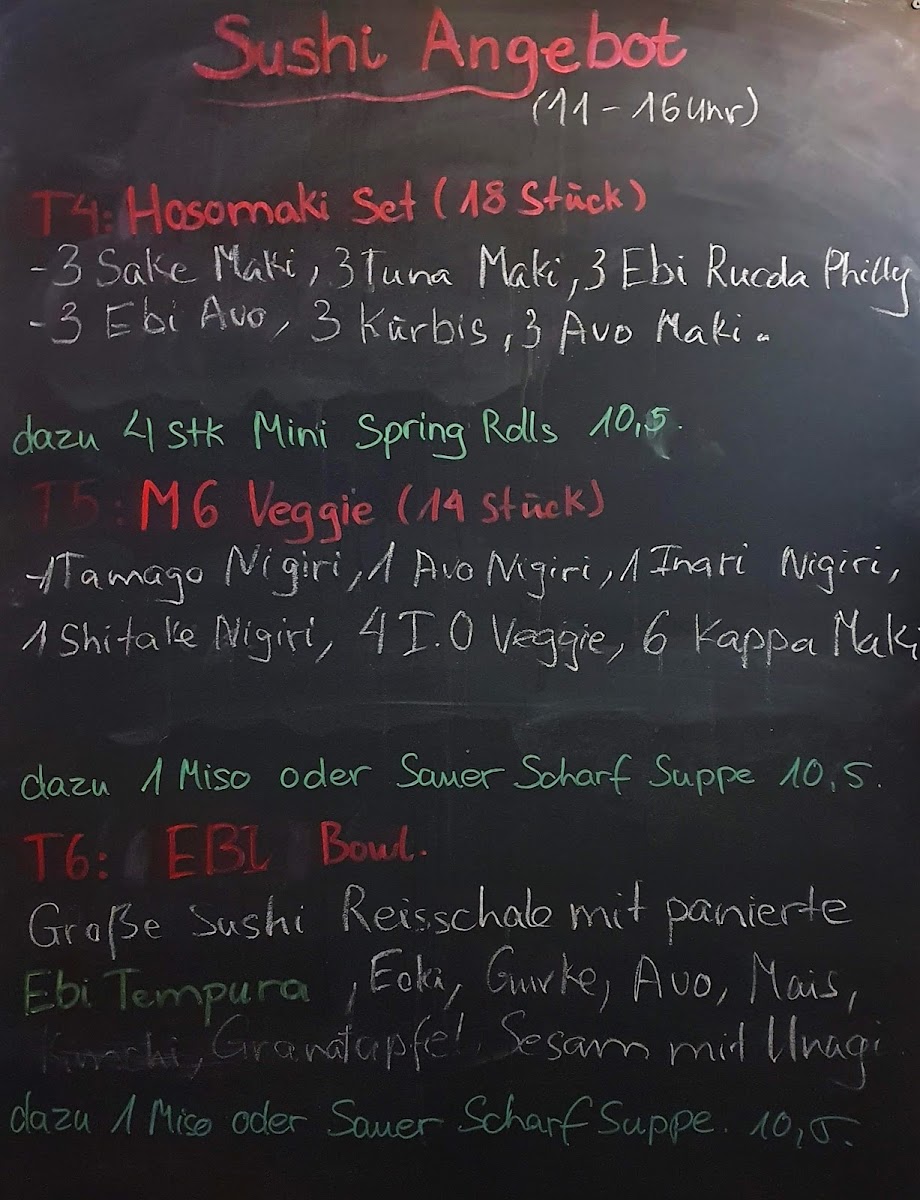 Sushi Angebot
(11 - 16 Uhr)
T4: Hosomaki Set (18 Stück)
- 3 Sake Maki, 3 Tuna Maki, 3 Ebi Rucola Philly
- 3 Ebi Avo, 3 Kürbis, 3 Avo Maki.
dazu 4 Stk Mini Spring Rolls 10,5.
T5: M6 Veggie (14 Stück)
-1 Tamago Nigiri, 1 Avo Nigiri, 1 Inari Nigiri,
1 Shitake Nigiri, 4 I.O Veggie, 6 Kappa Maki
dazu 1 Miso oder Sauer Scharf Suppe 10,5.
T6: EBI Bowl.
Große Sushi Reisschale mit panierte
Ebi Tempura, Gurke, Avo, Mais,
Granatapfel, Sesam mit Unagi
dazu 1 Miso oder Sauer Scharf Suppe. 10,5.